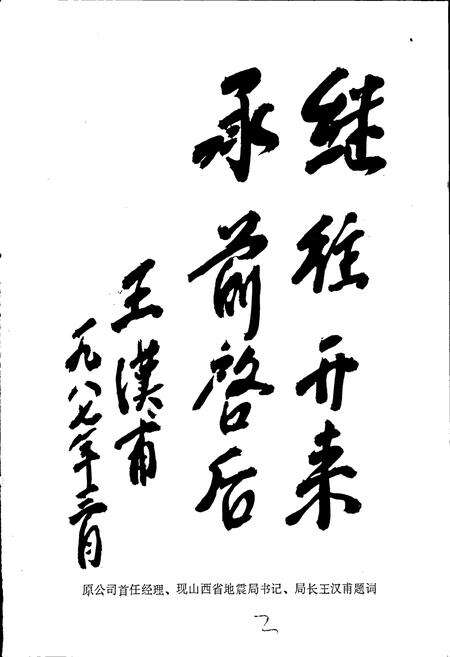 继往开来
承前启后
王汉甫
一九八七年三月
原公司首任经理、现山西省地震局书记、局长王汉甫题词